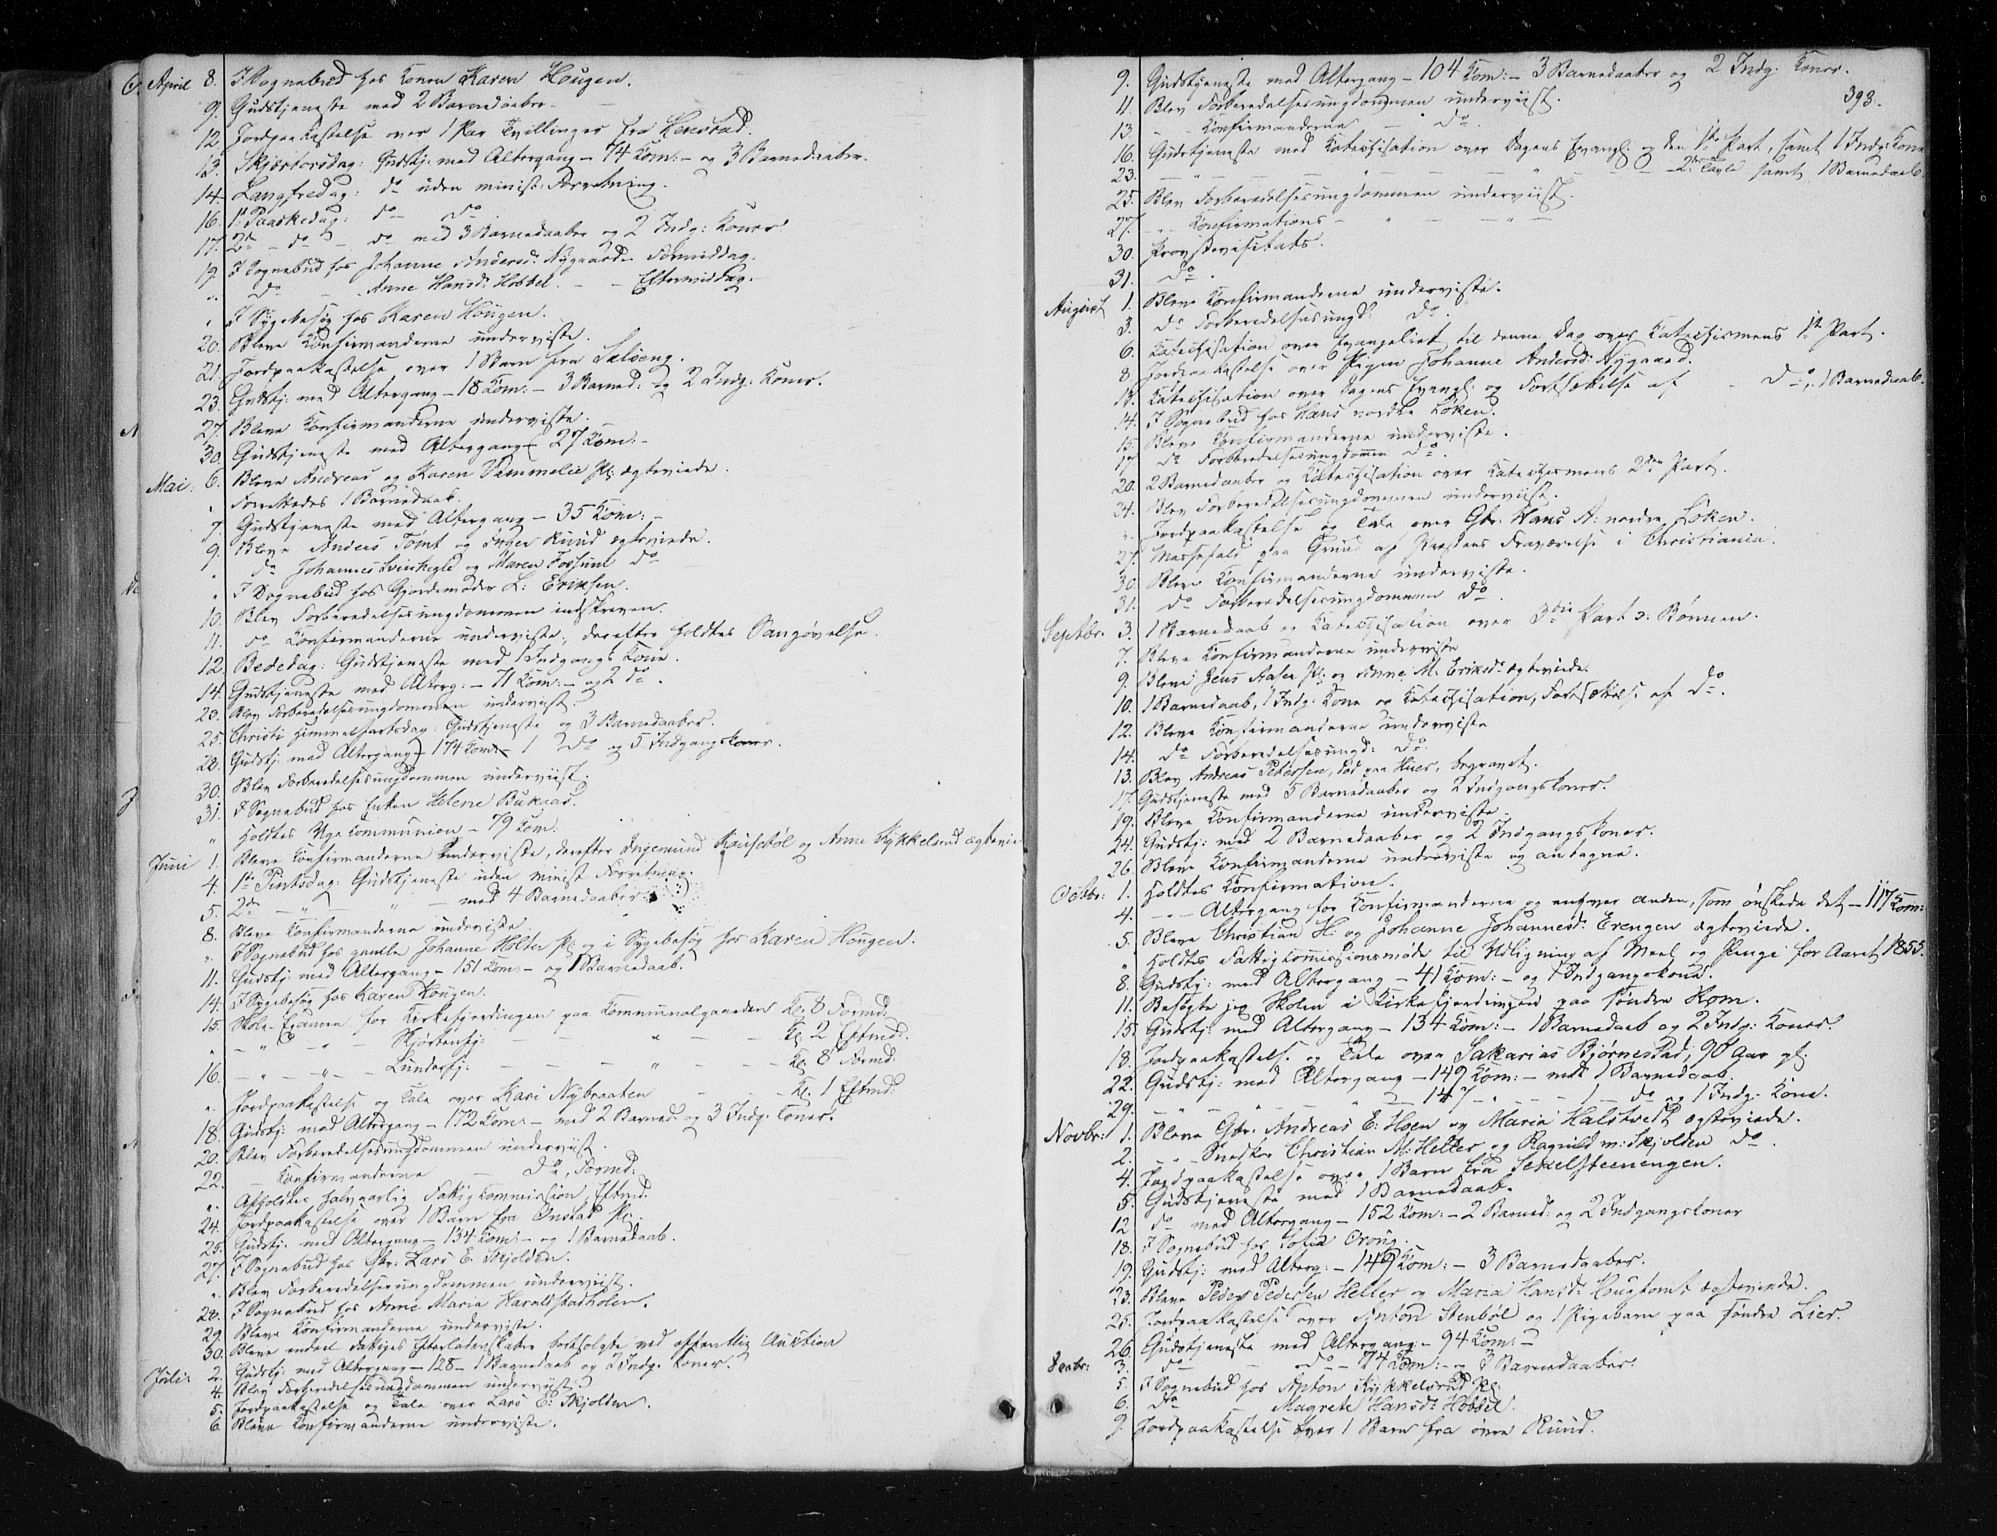 April 8. I Sognebud hos Konen Karen Hougen.
9. Gudstjeneste med 2 Barnedaaber.
12 Jordpaakastelse over 1 Par Tvillinger fra Henstad.
13. Skjærtorsdag: Gudstj: med Altergang - 74 Kom: - og 3 Barnedaaber.
14. Langfredag: do uden minist: Forretning.
16. 1ste Paaskedag: do do
17. 2den do - do med 3 Barnedaaber og 2 Indg: Koner
19. I Sognebud hos Johanne Andersd: Nygaard - Formiddag.
" do - Anne Hansd: Hobbel - - Eftermiddag.
" I Sygebesøg hos Karen Hougen.
20. Bleve Konfirmanderne underviste.
21. Jordpaakastelse over 1 Barn fra
23. Gudstj: med Altergang - 18 Kom: - 3 Barned: og 2 Indg: Koner.
27. Bleve Konfirmanderne underviste.
30. Gudstjeneste med Altergang - 27 Kom: -
Mai: 6. Bleve Andreas og Karen Vammelie Pl: ægteviede.
" Forrettedes 1 Barnedaab.
7. Gudstjeneste med Altergang - 35 Kom: -
9. Bleve Anders Tomt og Inger Ruud ægteviede.
" do Johannes og Maren Fossum do
" I Sognebud hos Gjordemoder L: Eriksen.
10. Blev Forberedelsesungdommen indskreven.
11. do Konfirmanderne underviste; derefter holdtes Sangøvelse.
12 Bededag: Gudstjeneste med 1 Indgangs Kone.
14. Gudstjeneste med Alterg: - 71 Kom: - og 2 do.
23. Blev Forberedelsesungdommen underviist.
25. Christi Himmelfartsdag: Gudstjeneste og 3 Barnedaaber.
28. Gudstj: med Altergang - 174 Kom: - 1 do og 5 Indgangskoner.
30. Blev Forberedelsesungdommen underviist.
31. I Sognebud hos Enken Helene
" Holdtes Ugekommunion - 79 Kom:
Juni 1. Bleve Konfirmanderne underviste, derefter Ingemund og Anne Kykkelsrud ægtevie
4. 1ste Pintsdag: Gudstjeneste uden minist: Forretning.
5. 2den - " - " - med 4 Barnedaaber
8. Bleve Konfirmanderne underviste
" I Sognebud hos gamle Johanne Holter Pl: og i Sygebesøg hos Karen Hougen.
11. Gudstj: med Altergang - 151 Kom: - og 1 Barnedaab.
14. I Sygebesøg hos Karen Hougen.
15. Skole-Examen for Kirkefjerdingen paa Kommunalgaarden Kl: 8 Formd:
" - " - " - - Kl: 2 Eftmd:
16. - " - " - - Kl: 8 Formd:
" Jordpaakastelse og Tale over Kari Nybraaten - - Kl: 1 Eftmd:
18. Gudstj: med Altergang - 172 Kom: - med 2 Barned: og 3 Indg: Koner.
20. Blev Forberedelsesungdommen underviist.
22. - Konfirmanderne - do, Formd:
" Afholdtes halvaarlig Fattigkommission, Eftmd:
24. Jordpaakastelse over 1 Barn fra Onstad Pl:
25. Gudstj: med Altergang - 134 Kom: - og 1 Barnedaab.
27. I Sognebud hos Gbr: Lars E. Skjolden.
" Blev Forberedelsesungdommen underviist.
28. I Sognebud hos Anne Maria Haraldstadholen.
29. Bleve Konfirmanderne underviste.
30. Bleve endeel Fattiges Efterladenskaber bortsolgte ved offentlig Auction
Juli: 2. Gudstj: med Altergang - 128 - 1 Barnedaab og 2 Indg: Koner.
4. Blev Forberedelsesungdommen underviist.
5. Jordpaakastelse og Tale over Lars E: Skjolden.
6. Bleve Konfirmanderne underviste.
393.
9. Gudstjeneste med Altergang - 104 Kom: - 3 Barnedaaber og 2 Indg: Koner.
11. Blev Forberedelsesungdommen underviist.
13. - Konfirmanderne - do
16. Gudstjeneste med Katechisation over Dagens Evangl: og den 1ste Part, samt 1 Indg: Kone
23. - - - - 2. Tavle samt 1 Barnedaab.
25. Blev Forberedelsesungdommen underviist.
27. - Konfirmations - " - - " -
30. Provstevisitats.
31. do
August 1. Bleve Konfirmanderne underviste.
3. do Forberedelsesungd: do.
6. Katechisation over Evangeliet til denne Dag over Katechismens 1ste Part.
8. Jordpaakastelse over Pigen Johanne Andersd: Nygaard.
13. Katechisation over Dagens Evangl: og Fortsættelse af - do, 1 Barnedaab.
14. I Sognebud hos Hans nordre Løken.
15. Bleve Konfirmanderne underviste.
17 do Forberedelsesungdommen do.
20. 2 Barnedaaber og Katechisation over Katechismens 2den Part.
24. Blev Forberedelsesungdommen underviist.
" Jordpaakastelse og Tale over Gbr: Hans A: nordre Løken.
27. Messefald paa Grund af Præstens Fraværelse i Christiania.
30. Bleve Konfirmanderne underviste.
31. do Forberedelsesungdommen do.
Septbr: 3. 1 Barnedaab og Katechisation over 3die Part o: Bønnen.
7. Bleve Konfirmanderne underviste
9. Bleve Jens Aasen Pl: og Anne M. Eriksd: ægteviede.
10. 1 Barnedaab, 1 Indg: Kone og Katechisation, Fortsættelse af do.
12. Bleve Konfirmanderne underviste
14. do Forberedelsesungd: do.
13. Blev Andreas Petersen, død paa Huer, begravet.
17. Gudstjeneste med 5 Barnedaaber og 2 Indgangskoner.
19. Bleve Konfirmanderne underviste.
24. Gudstj: med 2 Barnedaaber og 2 Indgangskoner.
26. Bleve Konfirmanderne underviste og antagne.
Octbr: 1. Holdtes Konfirmation.
4. - - Altergang for Konfirmanderne og enhver anden, som ønskede det - 117 Kom:
5. Bleve Christian H: og Johanne Johannesd: Erengen ægteviede.
" Holdtes Fattigkomissionsmøde til Udligning af Meel og Penge for Aaret 1855.
8. Gudstj: med Altergang - 41 Kom: - og 1 Indgangskone.
11. Besøgte jeg Skolen i Kirkefjerdingen paa søndre Kom.
15. Gudstj: med Altergang - 134 Kom: - 1 Barnedaab og 2 Indg: Koner.
18. Jordpaakastelse og Tale over Sakarias Bjørnestad, 90 Aar gl:
22. Gudstj: med Altergang - 149 Kom: - med 1 Barnedaab.
29. - " - " - 147 - " - 1 do og 1 Indg: Kone.
Novbr: 1. Bleve Gbr: Andreas E: Hoen og Maria Halstvedt ægteviede.
2. - Snedker Christian M: Heller og Ragnild m: Skjolden do.
4. Jordpaakastelse over 1 Barn fra Sekelsteenengen.
5. Gudstjeneste med 1 Barnedaab.
12 do med Altergang - 152 Kom: - 2 Barned: og 2 Indgangskoner
18. I Sognebud hos Sofia Oroug.
19. Gudstj: med Alterg: - 149 Kom: - 3 Barnedaaber.
23. Bleve Peder Pedersen Heller og Maria Hansd: Hougtomt ægteviede.
25. Jordpaakastelse over Anton Stenbøl og 1 Pigebarn paa søndre Lier.
26. Gudstjeneste med Altergang - 94 Kom: -
Decbr: 3. do - do - 74 Kom: - og 3 Barnedaaber.
5. I Sognebud hos Anton Kykkelsrud Pl:
6. do - Magrete Hansd: Hobbel.
9. Jordpaakastelse over 1 Barn fra øvre Ruud.